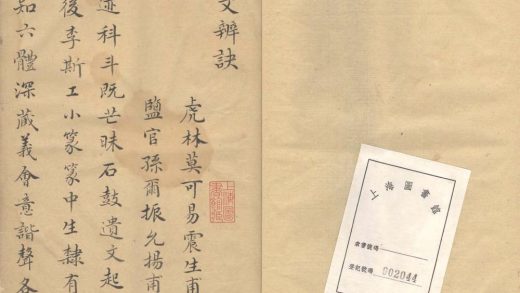 文辨訣
虎林莫可易震生甫
鹽官孫爾振允揚甫
迹科斗既芒昧石鼓遺文起
後李斯工小篆篆中生隸有
知六體深藏義會意諧聲各
上海圖書館藏
上海圖書館
索書號碼
登記號碼 002044